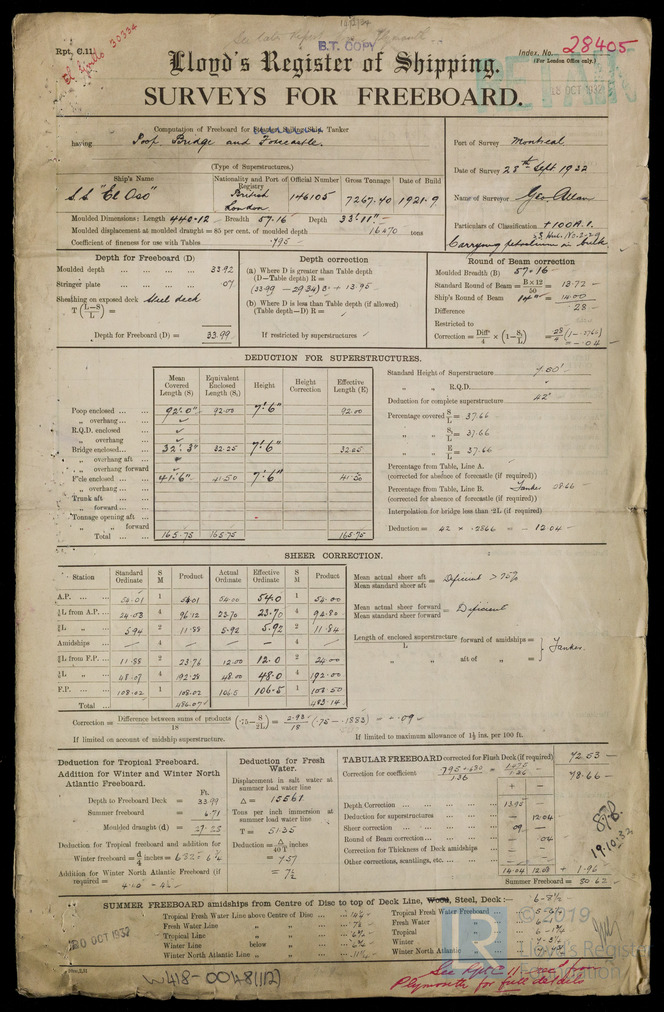 B.T. COPY
Rpt. C.11.
El Grillo 30334
Index. No. 28405
(For London Office only.)
Lloyd's Register of Shipping.
RETAIN
18 OCT 1932
SURVEYS FOR FREEBOARD.
Computation of Freeboard for Tanker
having Poop, Bridge and Forecastle.
(Type of Superstructures.)
Port of Survey Montreal
Date of Survey 28th Sept 1932
Name of Surveyor Geo. Allan
Particulars of Classification +100A.1.
Carrying petroleum in bulk
Ship's Name
Nationality and Port of Registry
Official Number
Gross Tonnage
Date of Build
S.S. "El Oso"
British
London
146105
7267.40
1921-9
Moulded Dimensions: Length 440.12 Breadth 57.16 Depth 33'11"
Moulded displacement at moulded draught = 85 per cent. of moulded depth 16470 tons
Coefficient of fineness for use with Tables .795
Depth for Freeboard (D)
Moulded depth ... 33.92
Stringer plate ... .07
Sheathing on exposed deck Steel deck
T (L-S/L) =
Depth for Freeboard (D) = 33.99
Depth correction
(a) Where D is greater than Table depth
(D—Table depth) R =
(33.99 - 29.34) 3 = + 13.95
(b) Where D is less than Table depth (if allowed)
(Table depth—D) R =
If restricted by superstructures
Round of Beam correction
Moulded Breadth (B) 57.16
Standard Round of Beam = B×12/50 = 13.72
Ship's Round of Beam = 14.00
Difference .28
Restricted to
Correction = Diffce/4 × (1-S1/L) = .28/4 (1-.3766) = -.04
DEDUCTION FOR SUPERSTRUCTURES.
Mean Covered Length (S)
Equivalent Enclosed Length (S1)
Height
Height Correction
Effective Length (E)
Poop enclosed 92'.0" 92.00 7'.6" 92.00
„ overhang
R.Q.D. enclosed
„ overhang
Bridge enclosed 32'.3" 32.25 7'.6" 32.25
„ overhang aft
„ overhang forward
F'cle enclosed 41'.6" 41.50 7'.6" 41.50
„ overhang
Trunk aft
„ forward
Tonnage opening aft
„ „ forward
Total 165.75 165.75 165.75
Standard Height of Superstructure 7.00'
„ „ R.Q.D.
Deduction for complete superstructure 42"
Percentage covered S/L = 37.66
„ „ S1/L = 37.66
„ „ E/L = 37.66
Percentage from Table, Line A.
(corrected for absence of forecastle (if required))
Percentage from Table, Line B. Tanker 28.66
(corrected for absence of forecastle (if required))
Interpolation for bridge less than .2L (if required)
Deduction = 42 × .2866 = - 12.04
SHEER CORRECTION.
Station
Standard Ordinate
S M
Product
Actual Ordinate
Effective Ordinate
S M
Product
A.P. 54.01 1 54.01 54.00 54.0 1 54.00
⅙L from A.P. 24.03 4 96.12 23.70 23.70 4 94.80
⅓L „ 5.94 2 11.88 5.92 5.92 2 11.84
Amidships — 4 — — — 4 —
⅓L from F.P. 11.88 2 23.76 12.00 12.0 2 24.00
⅙L „ 48.07 4 192.28 48.00 48.0 4 192.00
F.P. 108.02 1 108.02 106.5 106.5 1 106.50
Total 486.07 483.14
Mean actual sheer aft / Mean standard sheer aft = Deficient > 75%
Mean actual sheer forward / Mean standard sheer forward = Deficient
Length of enclosed superstructure / L forward of amidships =
„ „ aft of „ = Tanker
Correction = Difference between sums of products / 18 (.75 - S/2L) = 2.93/18 (.75 - .1883) = .09
If limited on account of midship superstructure.
If limited to maximum allowance of 1½ ins. per 100 ft.
Deduction for Tropical Freeboard.
Addition for Winter and Winter North
Atlantic Freeboard.
Ft.
Depth to Freeboard Deck = 33.99
Summer freeboard = 6.71
Moulded draught (d) = 27.28
Deduction for Tropical freeboard and addition for
Winter freeboard = d/4 inches = 6.82 = 6¾
Addition for Winter North Atlantic Freeboard (if
required =
Deduction for Fresh
Water.
Displacement in salt water at
summer load water line
Δ = 15561
Tons per inch immersion at
summer load water line
T = 51.35
Deduction = Δ/40 T inches
= 7.57
= 7½
TABULAR FREEBOARD corrected for Flush Deck (if required) 72.53
Correction for coefficient .795 + .680 / 1.36 = 1.475/1.36 78.66
+ -
Depth Correction ... 13.95
Deduction for superstructures ... 12.04
Sheer correction ... .09
Round of Beam correction ... .04
Correction for Thickness of Deck amidships
Other corrections, scantlings, etc.
14.04 12.08 + 1.96
Summer Freeboard = 80.62
19.10.32
SUMMER FREEBOARD amidships from Centre of Disc to top of Deck Line, Wood, Steel, Deck:— 6-8½
Tropical Fresh Water Line above Centre of Disc
Fresh Water Line „ „
Tropical Line „ „
Winter Line below „
Winter North Atlantic Line „ „
Tropical Fresh Water Freeboard
Fresh Water „
Tropical „ 6-1¾
Winter „ 7-3¼
Winter North Atlantic „
20 OCT 1932
© 2019
Lloyd's Register
Foundation
W418-0048(1/2)
See Rpt C 11 rec'd from
Plymouth for full details